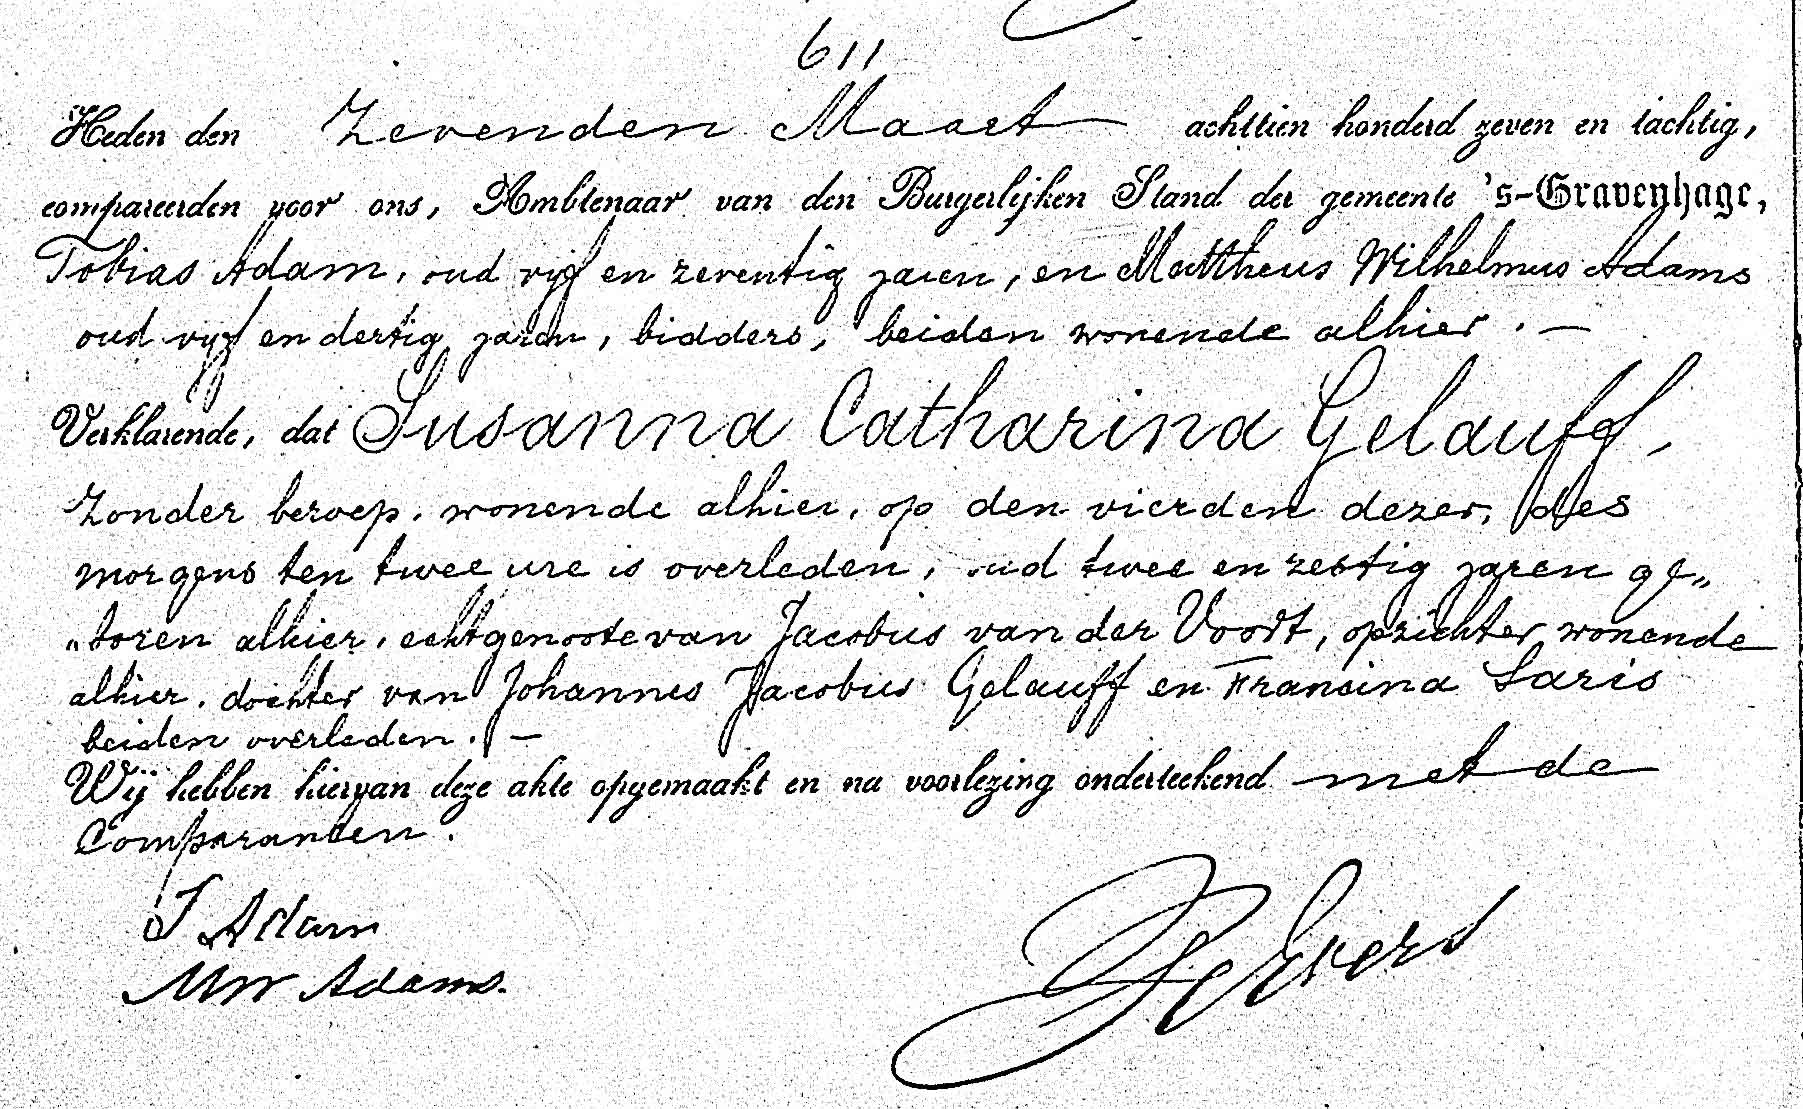 611
Heden den Zevenden Maart achttien honderd zeven en tachtig,
compareerden voor ons, Ambtenaar van den Burgerlijken Stand der gemeente 's-Gravenhage,
Tobias Adam, oud vijf en zeventig jaren, en Mattheus Wilhelmus Adams
oud vijf en dertig jaren, bidders, beiden wonende alhier. —
Verklarende, dat Susanna Catharina Gelauff,
zonder beroep, wonende alhier, op den vierden dezer, des
morgens ten twee ure is overleden, oud twee en zestig jaren ge„
„boren alhier, echtgenoote van Jacobus van der Voort, opzichter, wonende
alhier, dochter van Johannes Jacobus Gelauff en Fransina Saris
beiden overleden. —
Wij hebben hiervan deze akte opgemaakt en na voorlezing onderteekend met de
Comparanten.
T Adam
MW Adams.